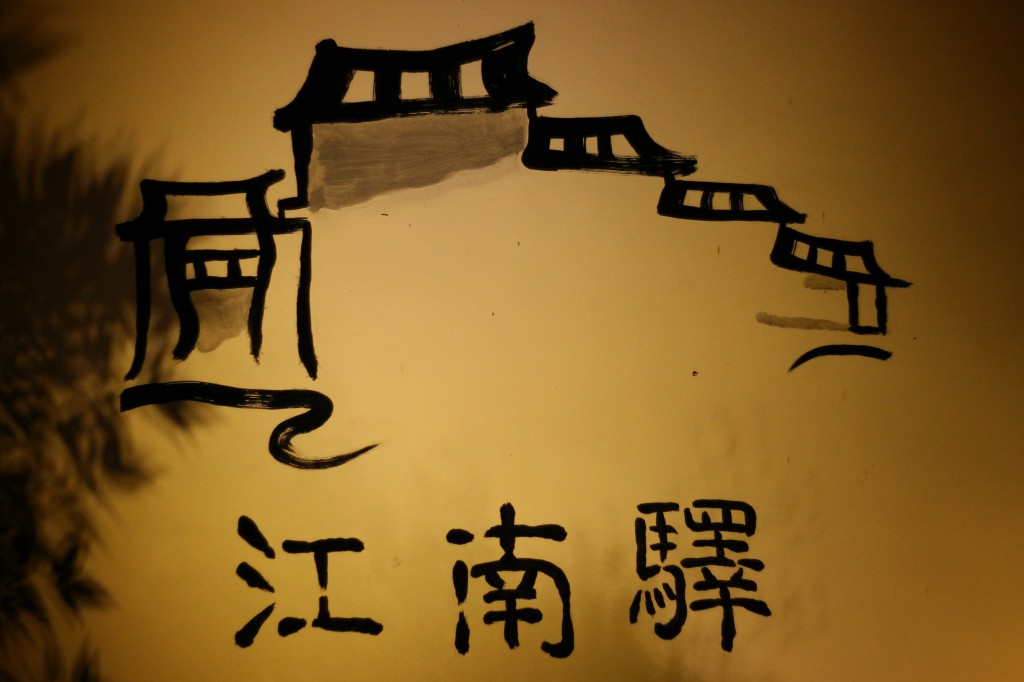 江南驛